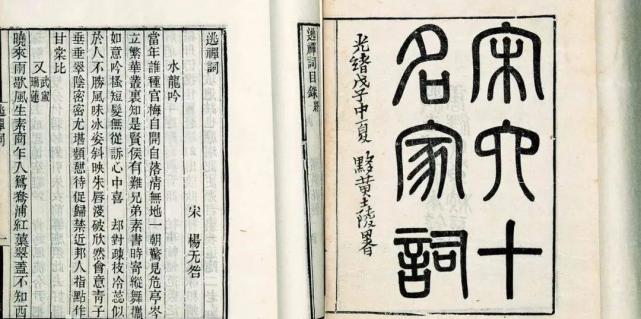 宋六十
名家詞
光緒戊子中夏 黟黃士陵署
逃禪詞目錄終
逃禪詞
宋 楊无咎
水龍吟
當年誰種官梅自開自落淸無地一朝驚見危亭岑
立繁華叢裏知是賢侯有難兄弟素書時寄縱舞攜
如意吟搔短髮無從訴心中喜 却對疎枝冷蕊似
於人不勝風味冰姿斜映朱唇淺破欣然會意靑子
垂垂翠陰密密尤堪頻憩待促歸禁近邦人指點作
甘棠比
又 武甯瑞蓮
曉來雨歇風生素商乍入鴛鴦浦紅蕖翠蓋不知西
逃禪詞
一